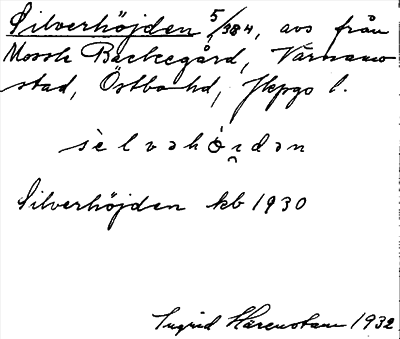 Silverhöjden 5/384, avs från
Mossle Backegård, Värnamo
stad, Östbo hd, Jkpgs l.
sèlvəhö̀i̯dən
Silverhöjden kb 1930
Ingrid Harenstam 1932